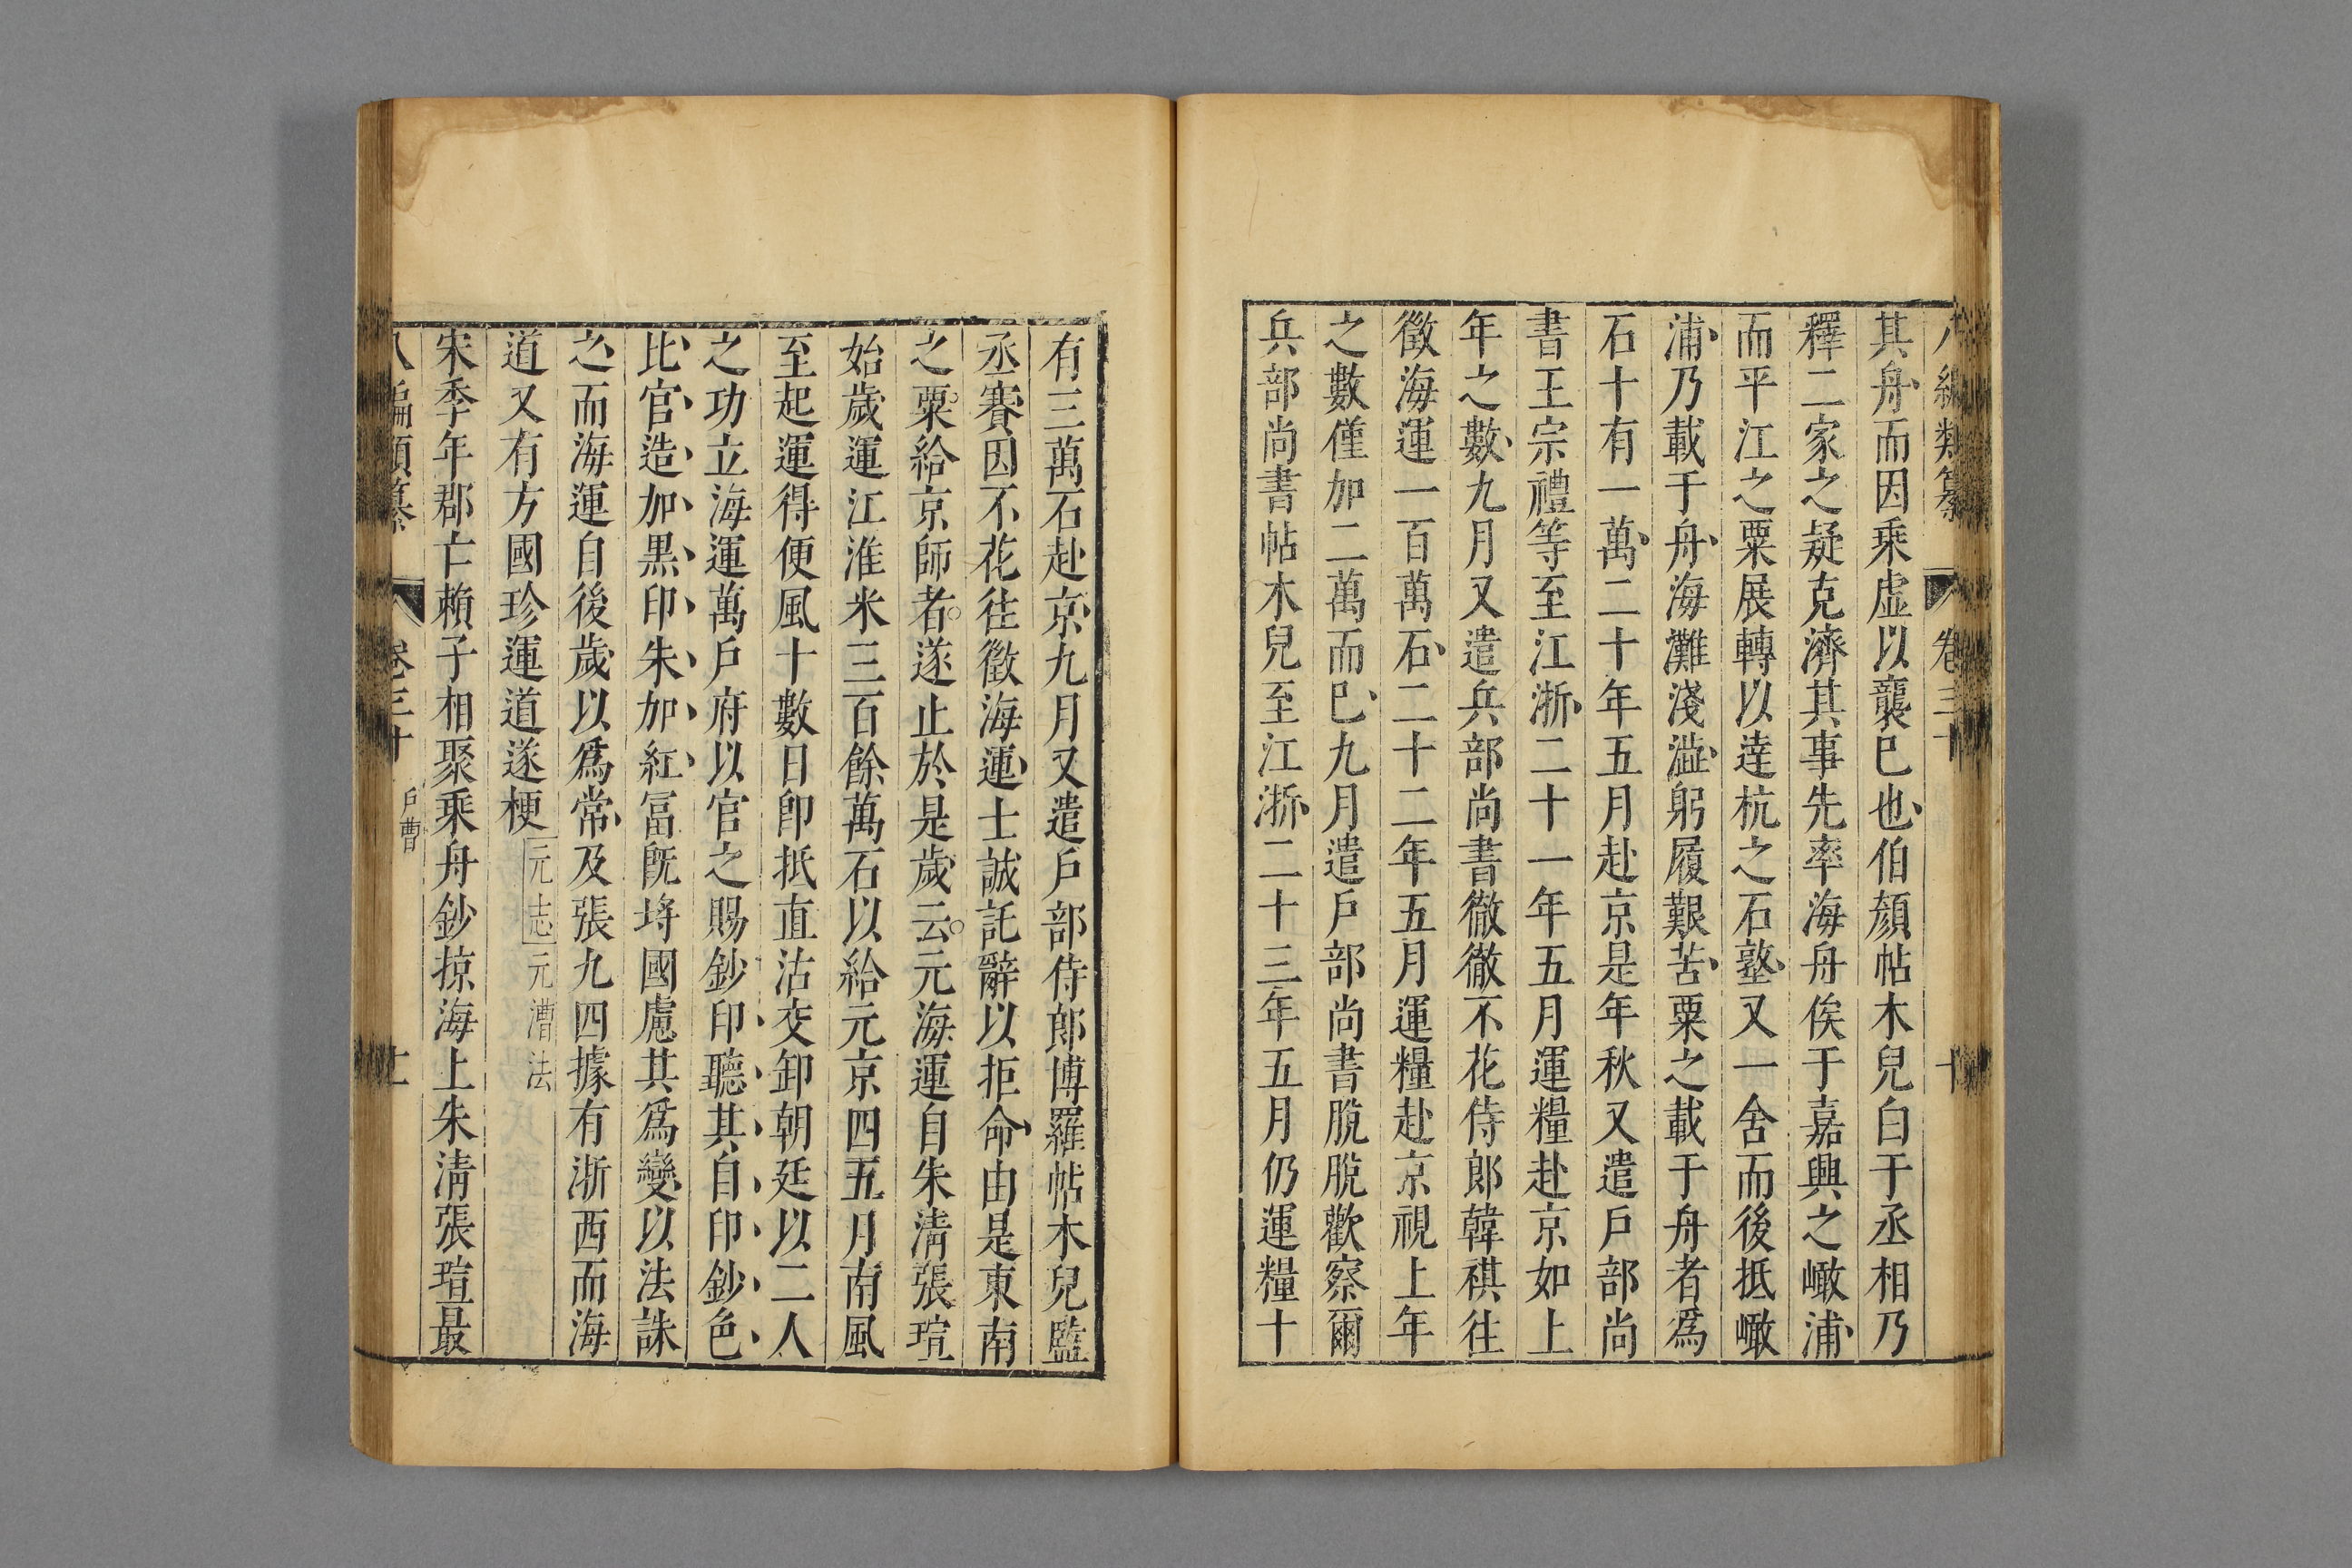 八編類纂 卷三十 十
其舟而因乘虛以襲巳也伯顏帖木兒白于丞相乃
釋二家之疑克濟其事先率海舟俟于嘉興之㠖浦
而平江之粟展轉以達杭之石墪又一舍而後抵㠖
浦乃載于舟海灘淺澁躬履艱苦粟之載于舟者爲
石十有一萬二十年五月赴京是年秋又遣戶部尚
書王宗禮等至江浙二十一年五月運糧赴京如上
年之數九月又遣兵部尚書徹徹不花侍郎韓祺往
徵海運一百萬石二十二年五月運糧赴京視上年
之數僅加二萬而巳九月遣戶部尚書脫脫歡察爾
兵部尚書帖木兒至江浙二十三年五月仍運糧十
有三萬石赴京九月又遣戶部侍郎博羅帖木兒監
丞賽因不花往徵海運士誠託辭以拒命由是東南
之粟給京師者遂止於是歲云元海運自朱清張瑄
始歲運江淮米三百餘萬石以給元京四五月南風
至起運得便風十數日卽抵直沽交卸朝廷以二人
之功立海運萬戶府以官之賜鈔印聽其自印鈔色
比官造加黑印朱加紅冨旣埓國慮其爲變以法誅
之而海運自後歲以爲常及張九四據有浙西而海
道又有方國珍運道遂梗元志元漕法
宋季年郡亡賴子相聚乘舟鈔掠海上朱清張瑄最
八編類纂 卷三十 戶曹 十一